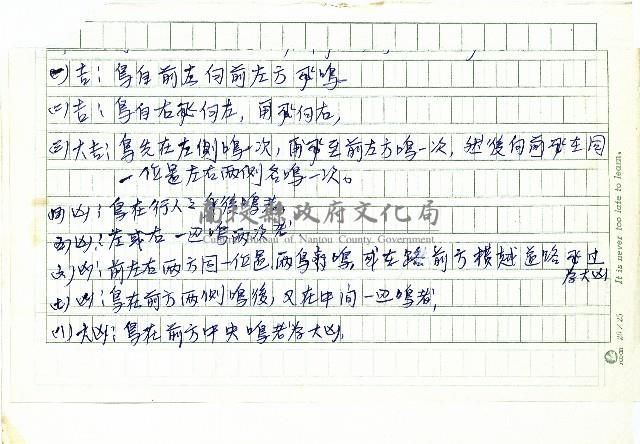 (一)吉：鳥自前左向前左方飛鳴
(二)吉：鳥自右飛向左，再飛向右，
(三)大吉：鳥先在左側鳴一次，再飛至前左方鳴一次，然後向前飛在同
一位置左右兩側各鳴一次。
(四)凶：鳥在行人之後鳴者，
南投縣政府文化局
(五)凶：左或右一边鳴兩次者
Cultural Bureau of Nantou County Government
(六)凶：前左右兩方同一位置兩鳥齊鳴，或在路前方橫越道路飛过
為大凶
(七)凶：鳥在前方兩側鳴後，又在中间一边鳴者，
(八)大凶：鳥在前方中央鳴者為大凶，
It is never too late to learn.
25 / 25